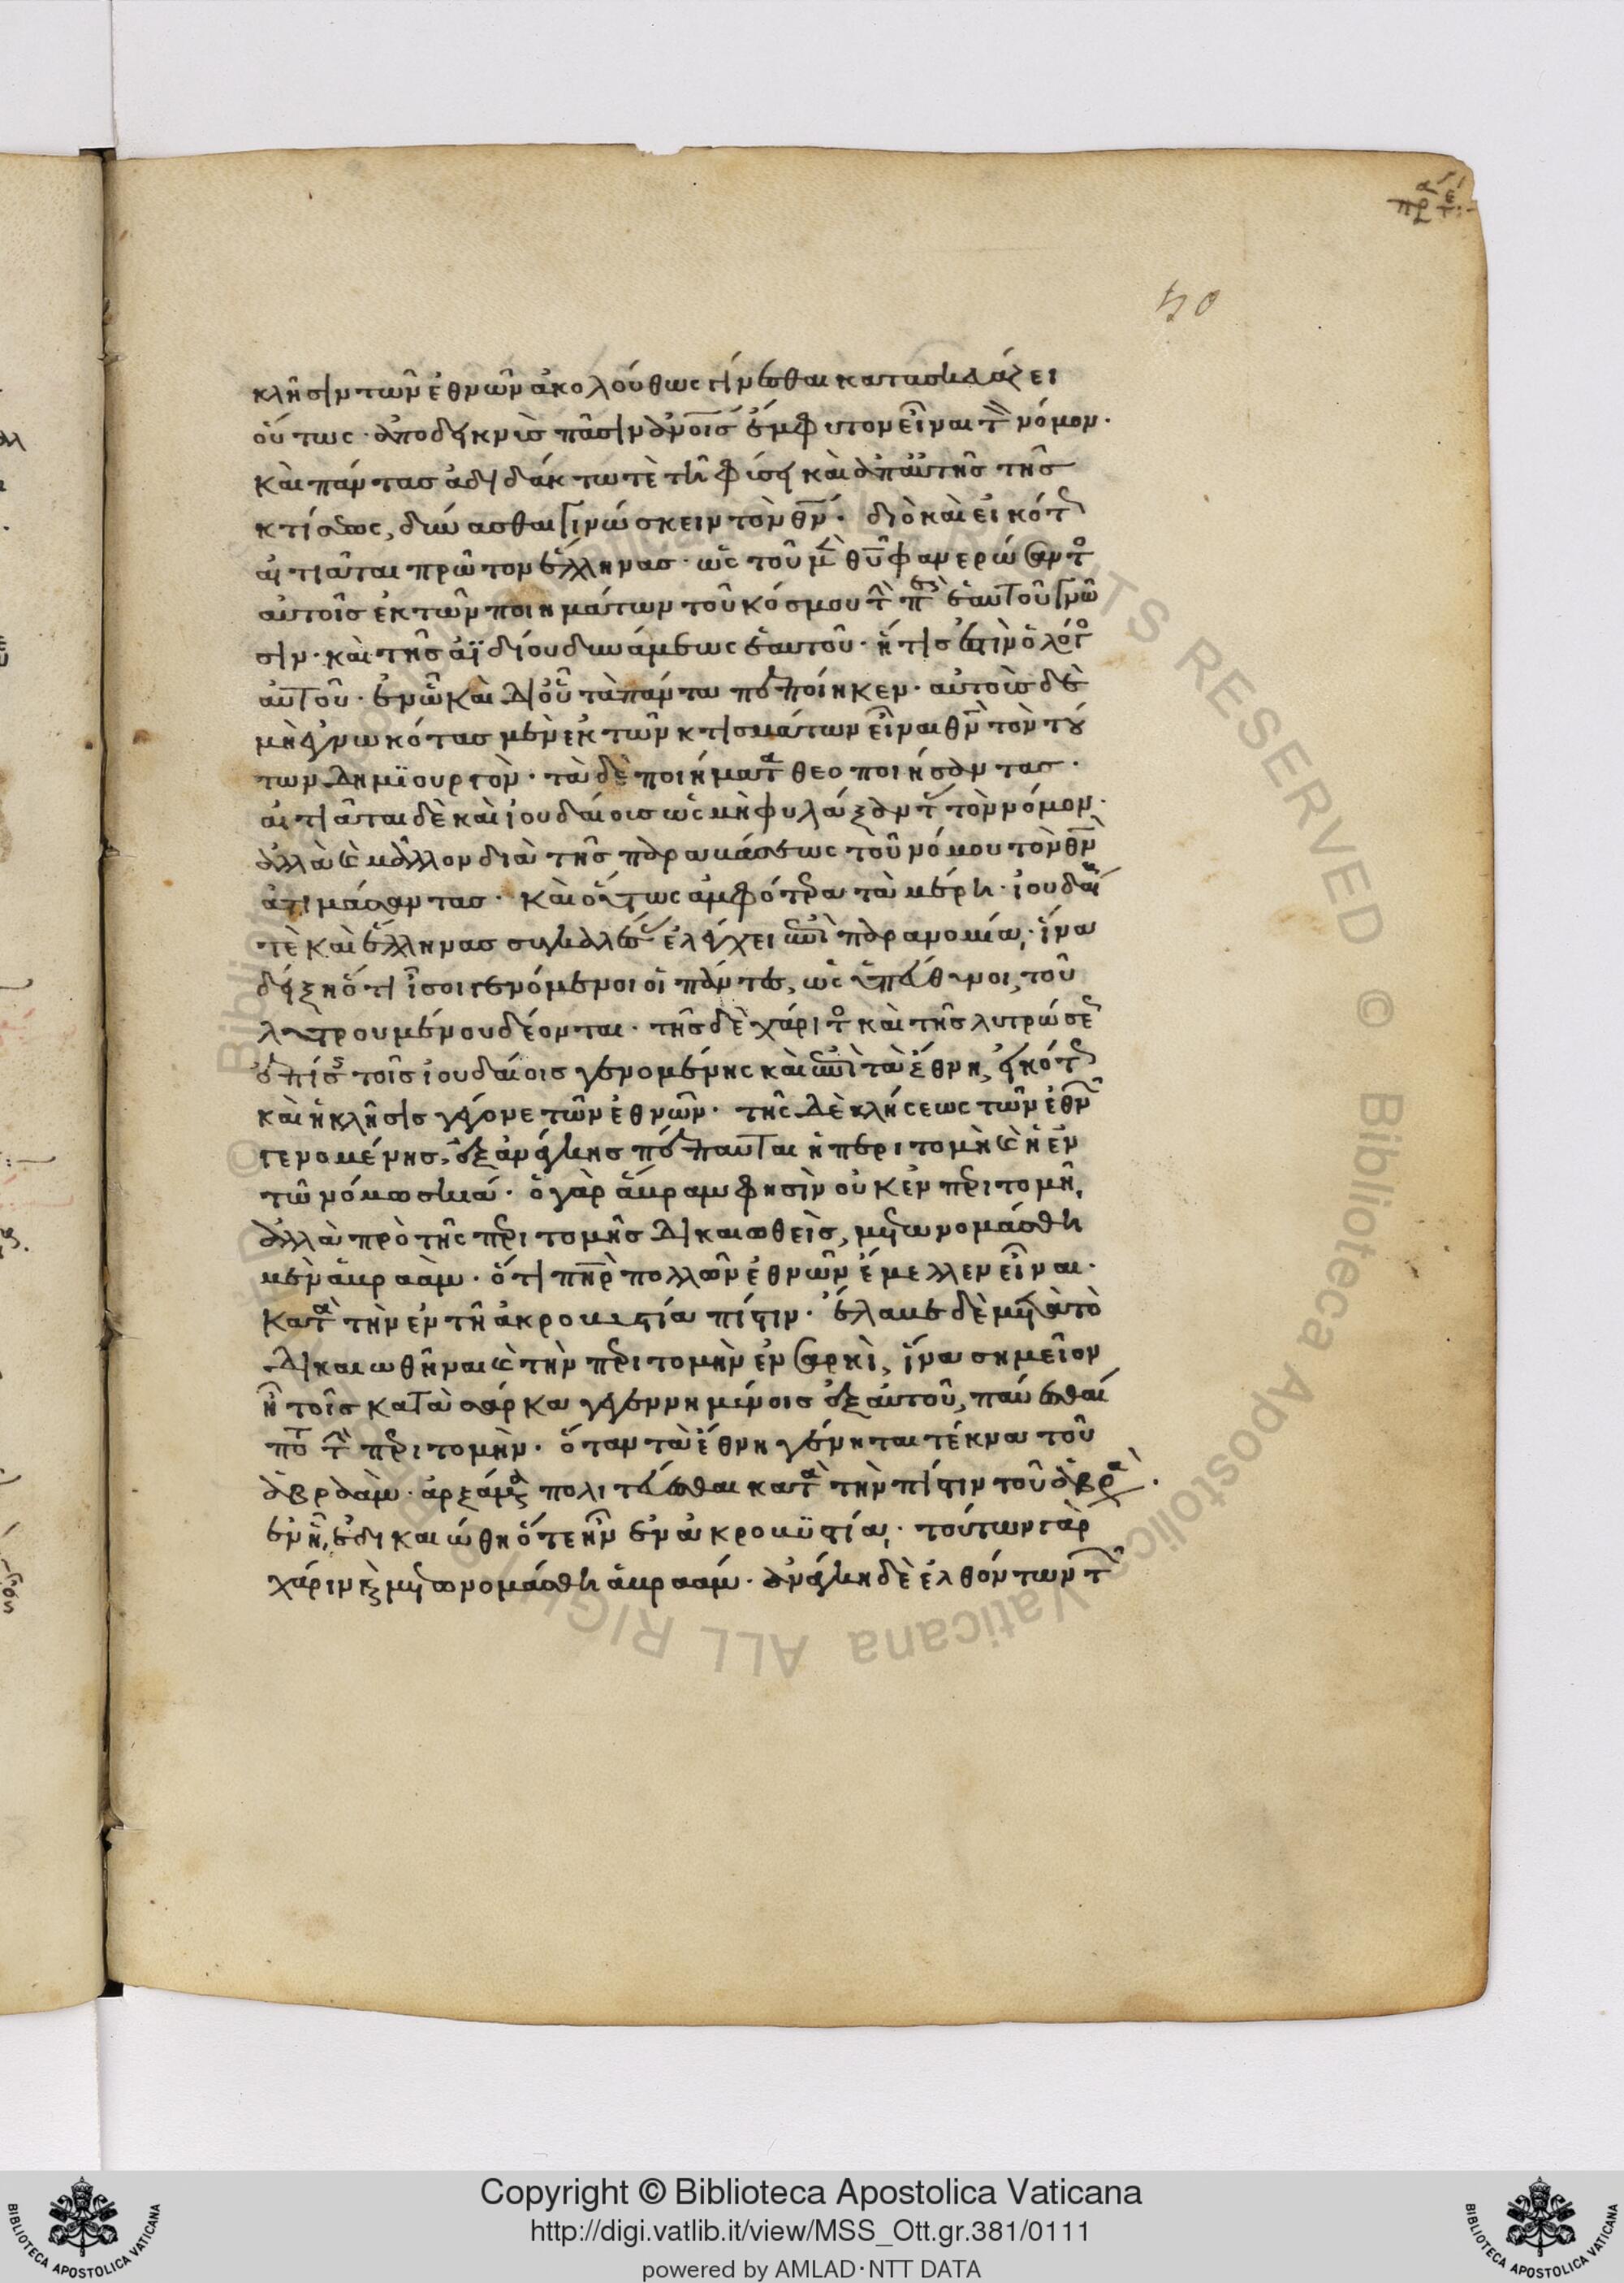 50
κλῆσιν τῶν ἐθνῶν ἀκολούθως γίνεσθαι κατασκευάζει
οὕτως· ἀποδείκνυσι πᾶσιν ἀνοις ἔμφυτον εἶναι τὸν νόμον·
καὶ πάντας ἀδιδάκτω τὲ τῆ φύσει καὶ ἀπ αὐτῆς τῆς
κτίσεως, δύνασθαι γινώσκειν τὸν θν· διὸ καὶ εἰκότως
αἰτιᾶται πρῶτον ἕλληνας· ὡς τοῦ μὲν θυ φανερώσαντος
αὐτοῖς ἐκ τῶν ποιημάτων τοῦ κόσμου τὴν περὶ ἑαυτοῦ γνῶ
σιν· καὶ τῆς ἀϊδίου δυνάμεως ἑαυτοῦ· ἥτις ἐστὶν ὁ λόγος
αὐτοῦ· ἐν ὧ καὶ δι οὗ τὰ πάντα πεποίηκεν· αὐτοὺς δὲ
μὴ ἐγνωκότας μὲν ἐκ τῶν κτισμάτων εἶναι θν τὸν τού
των δημϊουργὸν· τὰ δὲ ποιήματα θεοποιήσαντας·
αἰτιᾶται δὲ καὶ ἰουδαίους ὡς μὴ φυλάξαντας τὸν νόμον·
ἀλλὰ καὶ μᾶλλον διὰ τῆς παραβάσεως τοῦ νόμου τὸν θν
ἀτιμάσαντας· καὶ οὕτως ἀμφότερα τὰ μέρη· ἰουδαίους
τὲ καὶ ἕλληνας συγκαλέσας ἐλέγχει ἐπὶ παρανομία, ἵνα
δείξη ὅτι ἴσοι γενόμενοι οἱ πάντες, ὡς ὑπεύθυνοι, τοῦ
λυτρουμένου δέονται· τῆς δὲ χάριτος καὶ τῆς λυτρώσεως
ἐπίσης τοῖς ἰουδαίοις γενομένης καὶ ἐπὶ τὰ ἔθνη, εἰκότως
καὶ ἡ κλῆσις γέγονε τῶν ἐθνῶν· τῆς δὲ κλήσεως τῶν ἐθνῶν
γενομένης, ἐξ ἀνάγκης πέπαυται ἡ περιτομὴ καὶ ἡ ἐν
τῶ νόμω σκιά· ὁ γὰρ ἄβραμ φησὶν οὐκ ἐν περιτομῆ,
ἀλλὰ πρὸ τῆς περιτομῆς δικαιωθεὶς, μετωνομάσθη
μὲν ἀβραὰμ· ὅτι πηρ πολλῶν ἐθνῶν ἔμελλεν εἶναι·
κατὰ τὴν ἐν τῆ ἀκροβυστία πίστιν· ἔλαβε δὲ μετὰ τὸ
δικαιωθῆναι καὶ τὴν περιτομὴν ἐν σαρκὶ, ἵνα σημεῖον
ἦ τοῖς κατὰ σάρκα γεγεννημένοις ἐξ αὐτοῦ, παύεσθαί
ποτε τὴν περιτομὴν· ὅταν τὰ ἔθνη γένηται τέκνα τοῦ
ἀβραὰμ· ἀρξάμενα πολιτεύεσθαι κατὰ τὴν πίστιν τοῦ ἀβραὰμ·
ἐν ἧ, ἐδικαιώθη ὅτε ἦν ἐν ἀκροβϋστία· τούτων γὰρ
χάριν καὶ μετωνομάσθη ἀβραάμ· ἀνάγκη δὲ ἐλθόντων τῶν
Copyright © Biblioteca Apostolica Vaticana
http://digi.vatlib.it/view/MSS_Ott.gr.381/0111
powered by AMLAD·NTT DATA